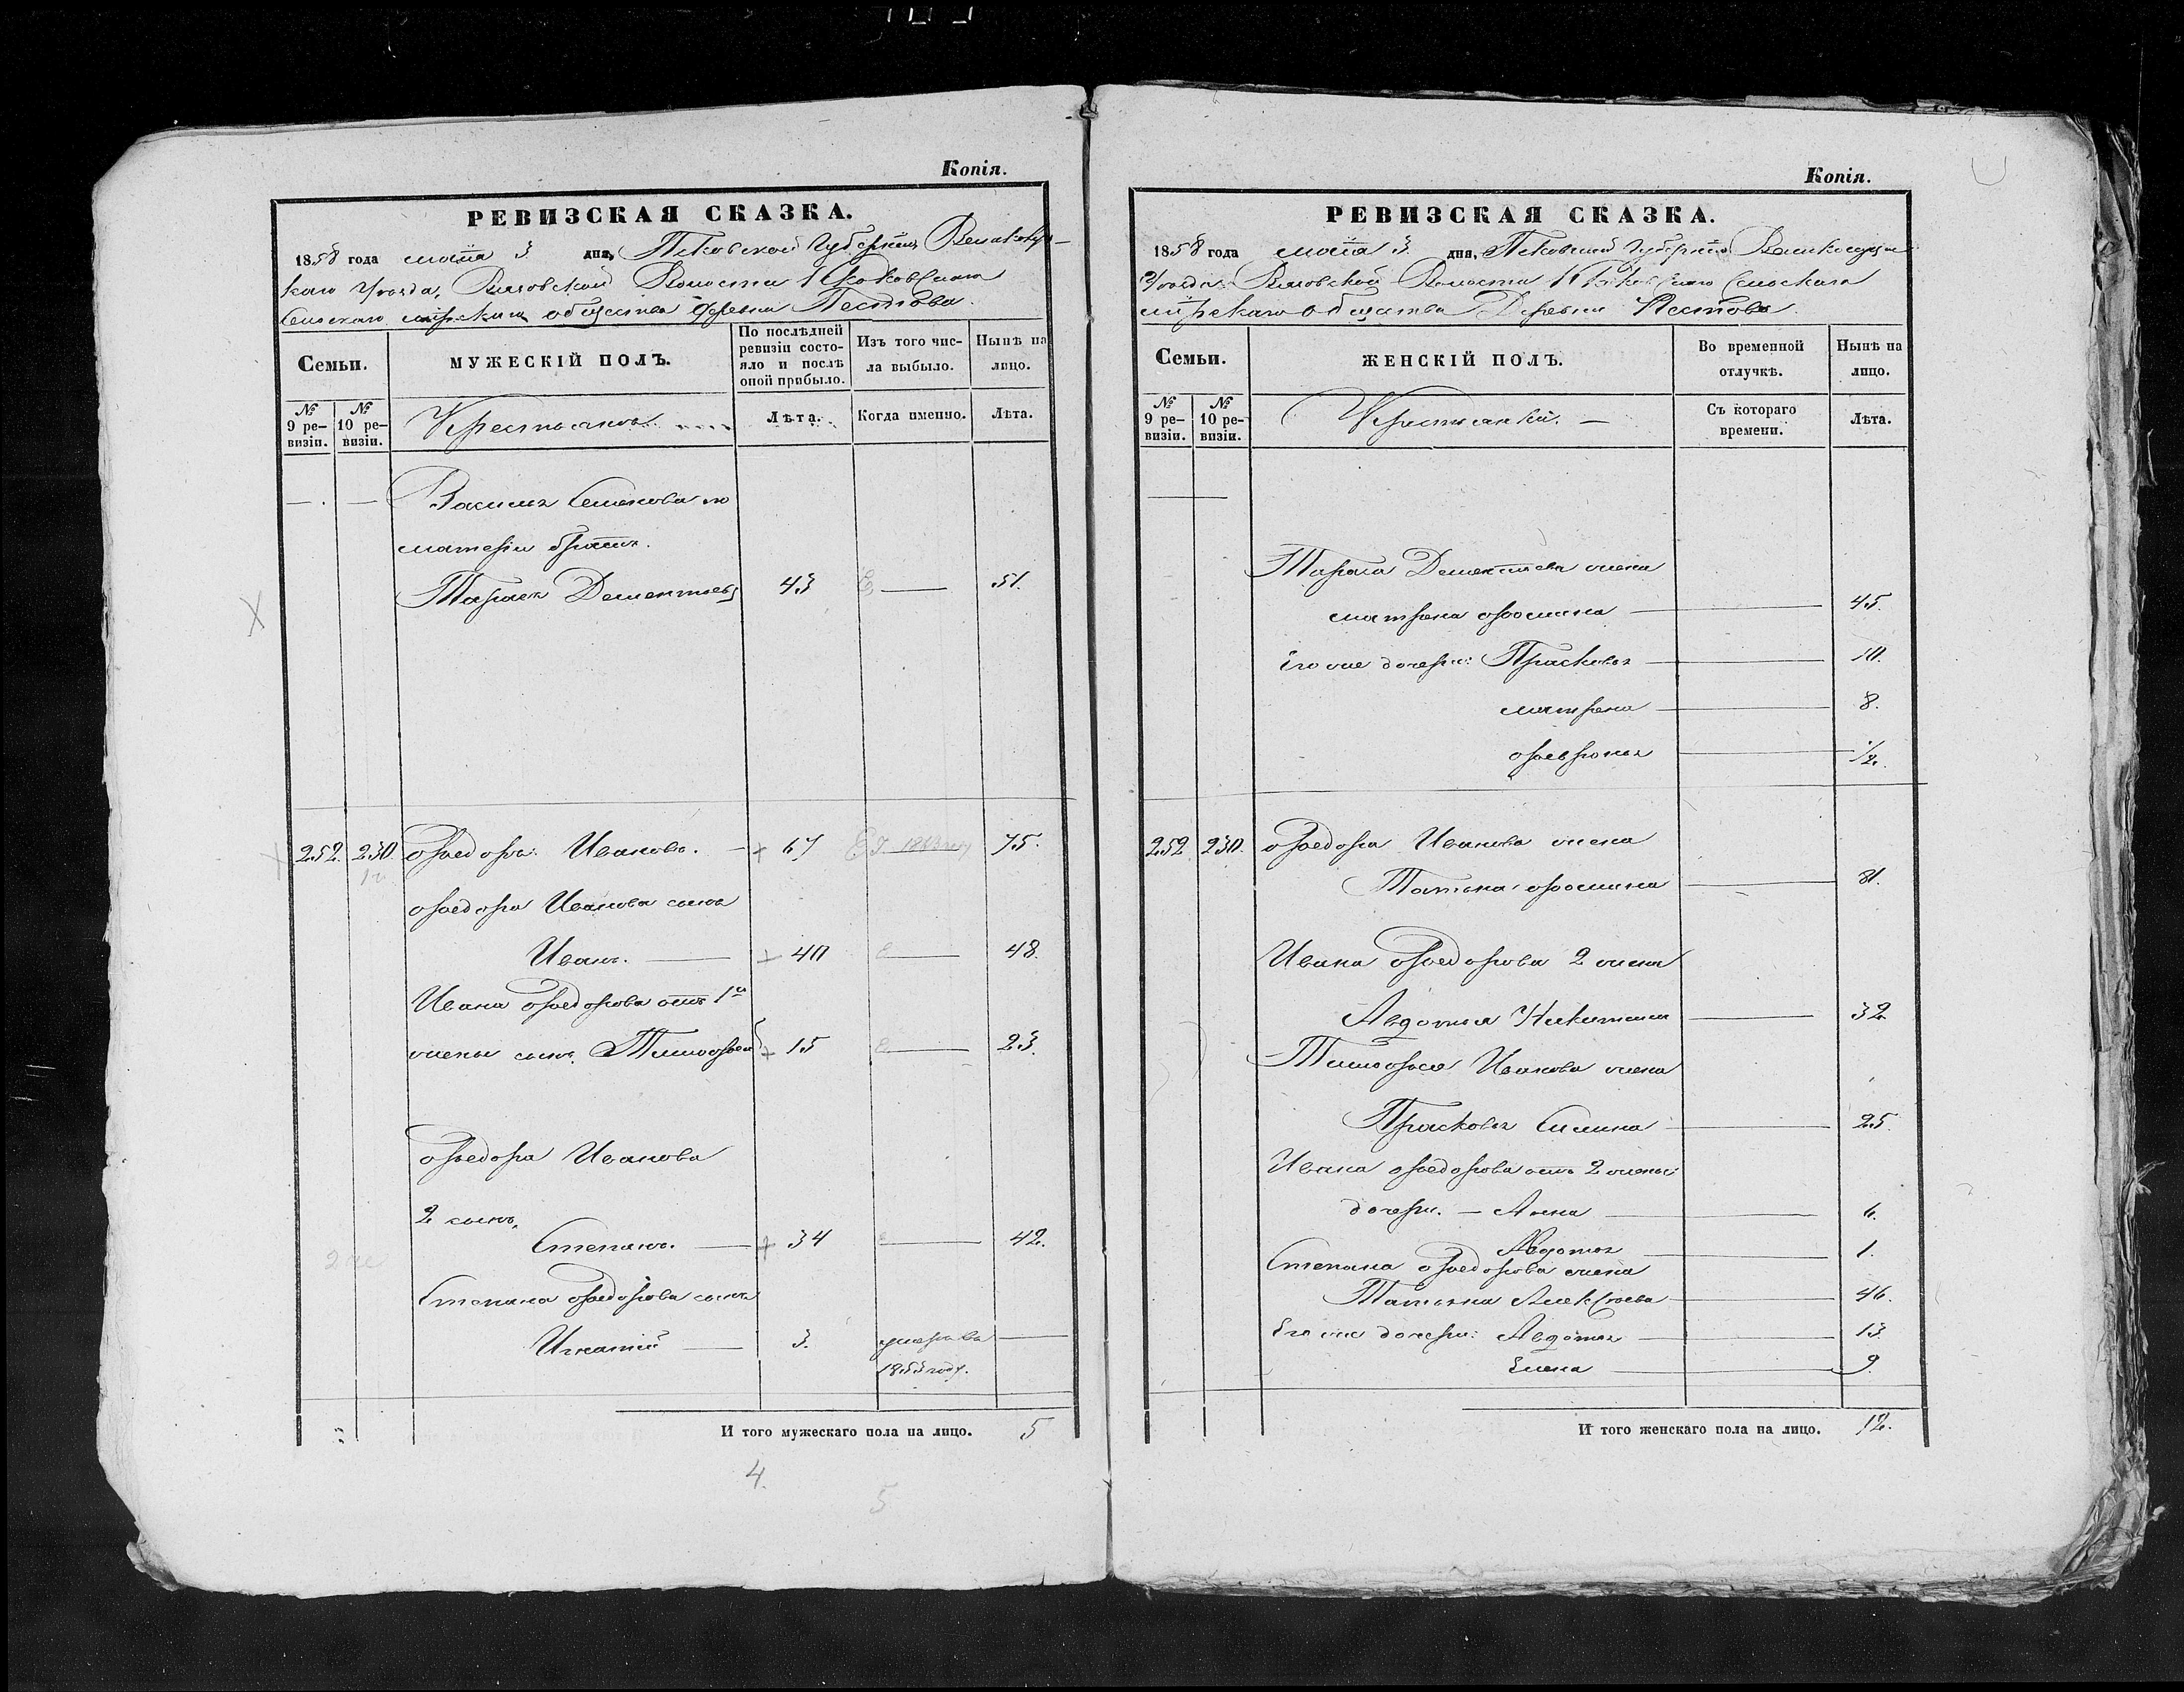 Копія.
РЕВИЗСКАЯ СКАЗКА.
1858 года маія 3 дня, Псковской Губерніи Великолу-
каго Уѣзда, Волости
Сельскаго мірскаго общества Деревни Пестова.
Семьи.
МУЖЕСКІЙ ПОЛЪ.
По послѣдней ревизіи состо-
яло и послѣ оной прибыло.
Изъ того чис-
ла выбыло.
Нынѣ на
лицо.
№ 9 ре-
визіи.
№ 10 ре-
визіи.
Крестьянъ.
Лѣта.
Когда именно.
Лѣта.
— . — Василья Семенова по
матери братъ.
Тарасъ Дементьевъ 43 — 51.
252. 230. Ѳедоръ Ивановъ. — 67 1863 75.
Ѳедора Иванова сынъ
Иванъ. — 40 — 48.
Ивана Ѳедорова отъ 1й
жены сынъ Тимоѳей 15 — 23.
Ѳедора Иванова
2 сынъ,
Степанъ. — 34 — 42.
Степана Ѳедорова сынъ
Игнатій — 3. умеръ въ —
1853 году.
И того мужескаго пола на лицо. 5
4.
5
Копія.
РЕВИЗСКАЯ СКАЗКА.
1858 года маія 3 дня, Псковской Губерніи Великолуцкаго
Уѣзда Волости Сельскаго
мірскаго Общества Деревни Пестова.
Семьи.
ЖЕНСКІЙ ПОЛЪ.
Во временной
отлучкѣ.
Нынѣ на
лицо.
№ 9 ре-
визіи.
№ 10 ре-
визіи.
Крестьянки. —
Съ котораго
времени.
Лѣта.
Тараса Дементьева жена
Матрена Ѳомина — 45.
Его же дочери: Прасковья — 10.
Матрена — 8.
Ѳевронья — 1/2.
252 230. Ѳедора Иванова жена
Татьяна Ѳомина — 81.
Ивана Ѳедорова 2 жена
Авдотья Никитина — 32
Тимоѳея Иванова жена
Прасковья Силина — 25.
Ивана Ѳедорова отъ 2 жены
дочери. — Анна — 6.
Авдотья — 1.
Степана Ѳедорова жена
Татьяна Алексѣева — 46.
Его же дочери: Авдотья — 13
Елена — 9.
И того женскаго пола на лицо. 12.